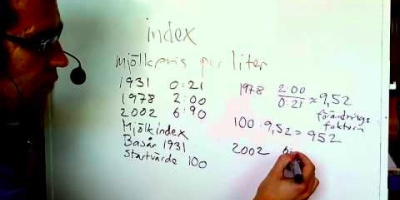 index
mjölkpris per liter
1931 0:21
1978 2:00
2002 6:90
Mjölkindex
Basår 1931
Startvärde 100
1978 2:00 / 0:21 ≈ 9,52
förändrings
faktorn
100 · 9,52 = 952
2002